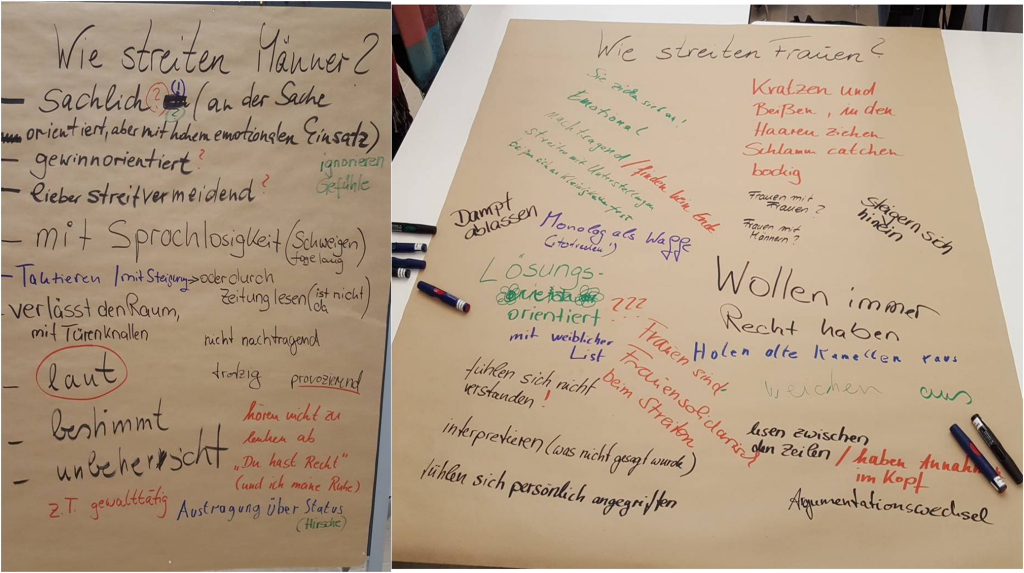 Wie streiten Männer?
— sachlich ? (!) (an der Sache
orientiert, aber mit hohem emotionalen Einsatz)
— gewinnorientiert ?
ignorieren
Gefühle
— lieber streitvermeidend ?
— mit Sprachlosigkeit (Schweigen)
tagelang
— Taktieren / mit Steigung -> oder durch
Zeitung lesen (ist nicht
da)
verlässt den Raum,
mit Türenknallen
nicht nachtragend
— laut
trotzig provozierend
— bestimmt
hören nicht zu
lenken ab
— unbeherrscht
"Du hast Recht"
(und ich meine Ruhe)
z.T. gewalttätig
Austragung über Status
(Hirsche)
Wie streiten Frauen?
Sie zicken sich an!
Emotional
nachtragend / finden kein Ende
streiten mit Unterstellungen
Kratzen und
Beißen, in den
Haaren ziehen
Schlamm catchen
bockig
Frauen mit
Frauen?
Frauen mit
Männern?
Steigern sich
hinein
Dampf
ablassen
Monolog als Waffe
Lösungs-
orientiert ???
mit weiblicher
List
Wollen immer
Recht haben
Holen olte Kamellen raus
weichen aus
Frauen sind
Frauensolidarisch
beim Streiten
fühlen sich nicht
verstanden!
interpretieren (was nicht gesagt wurde)
fühlen sich persönlich angegriffen
lesen zwischen
den Zeilen / haben Annahmen
im Kopf
Argumentationswechsel